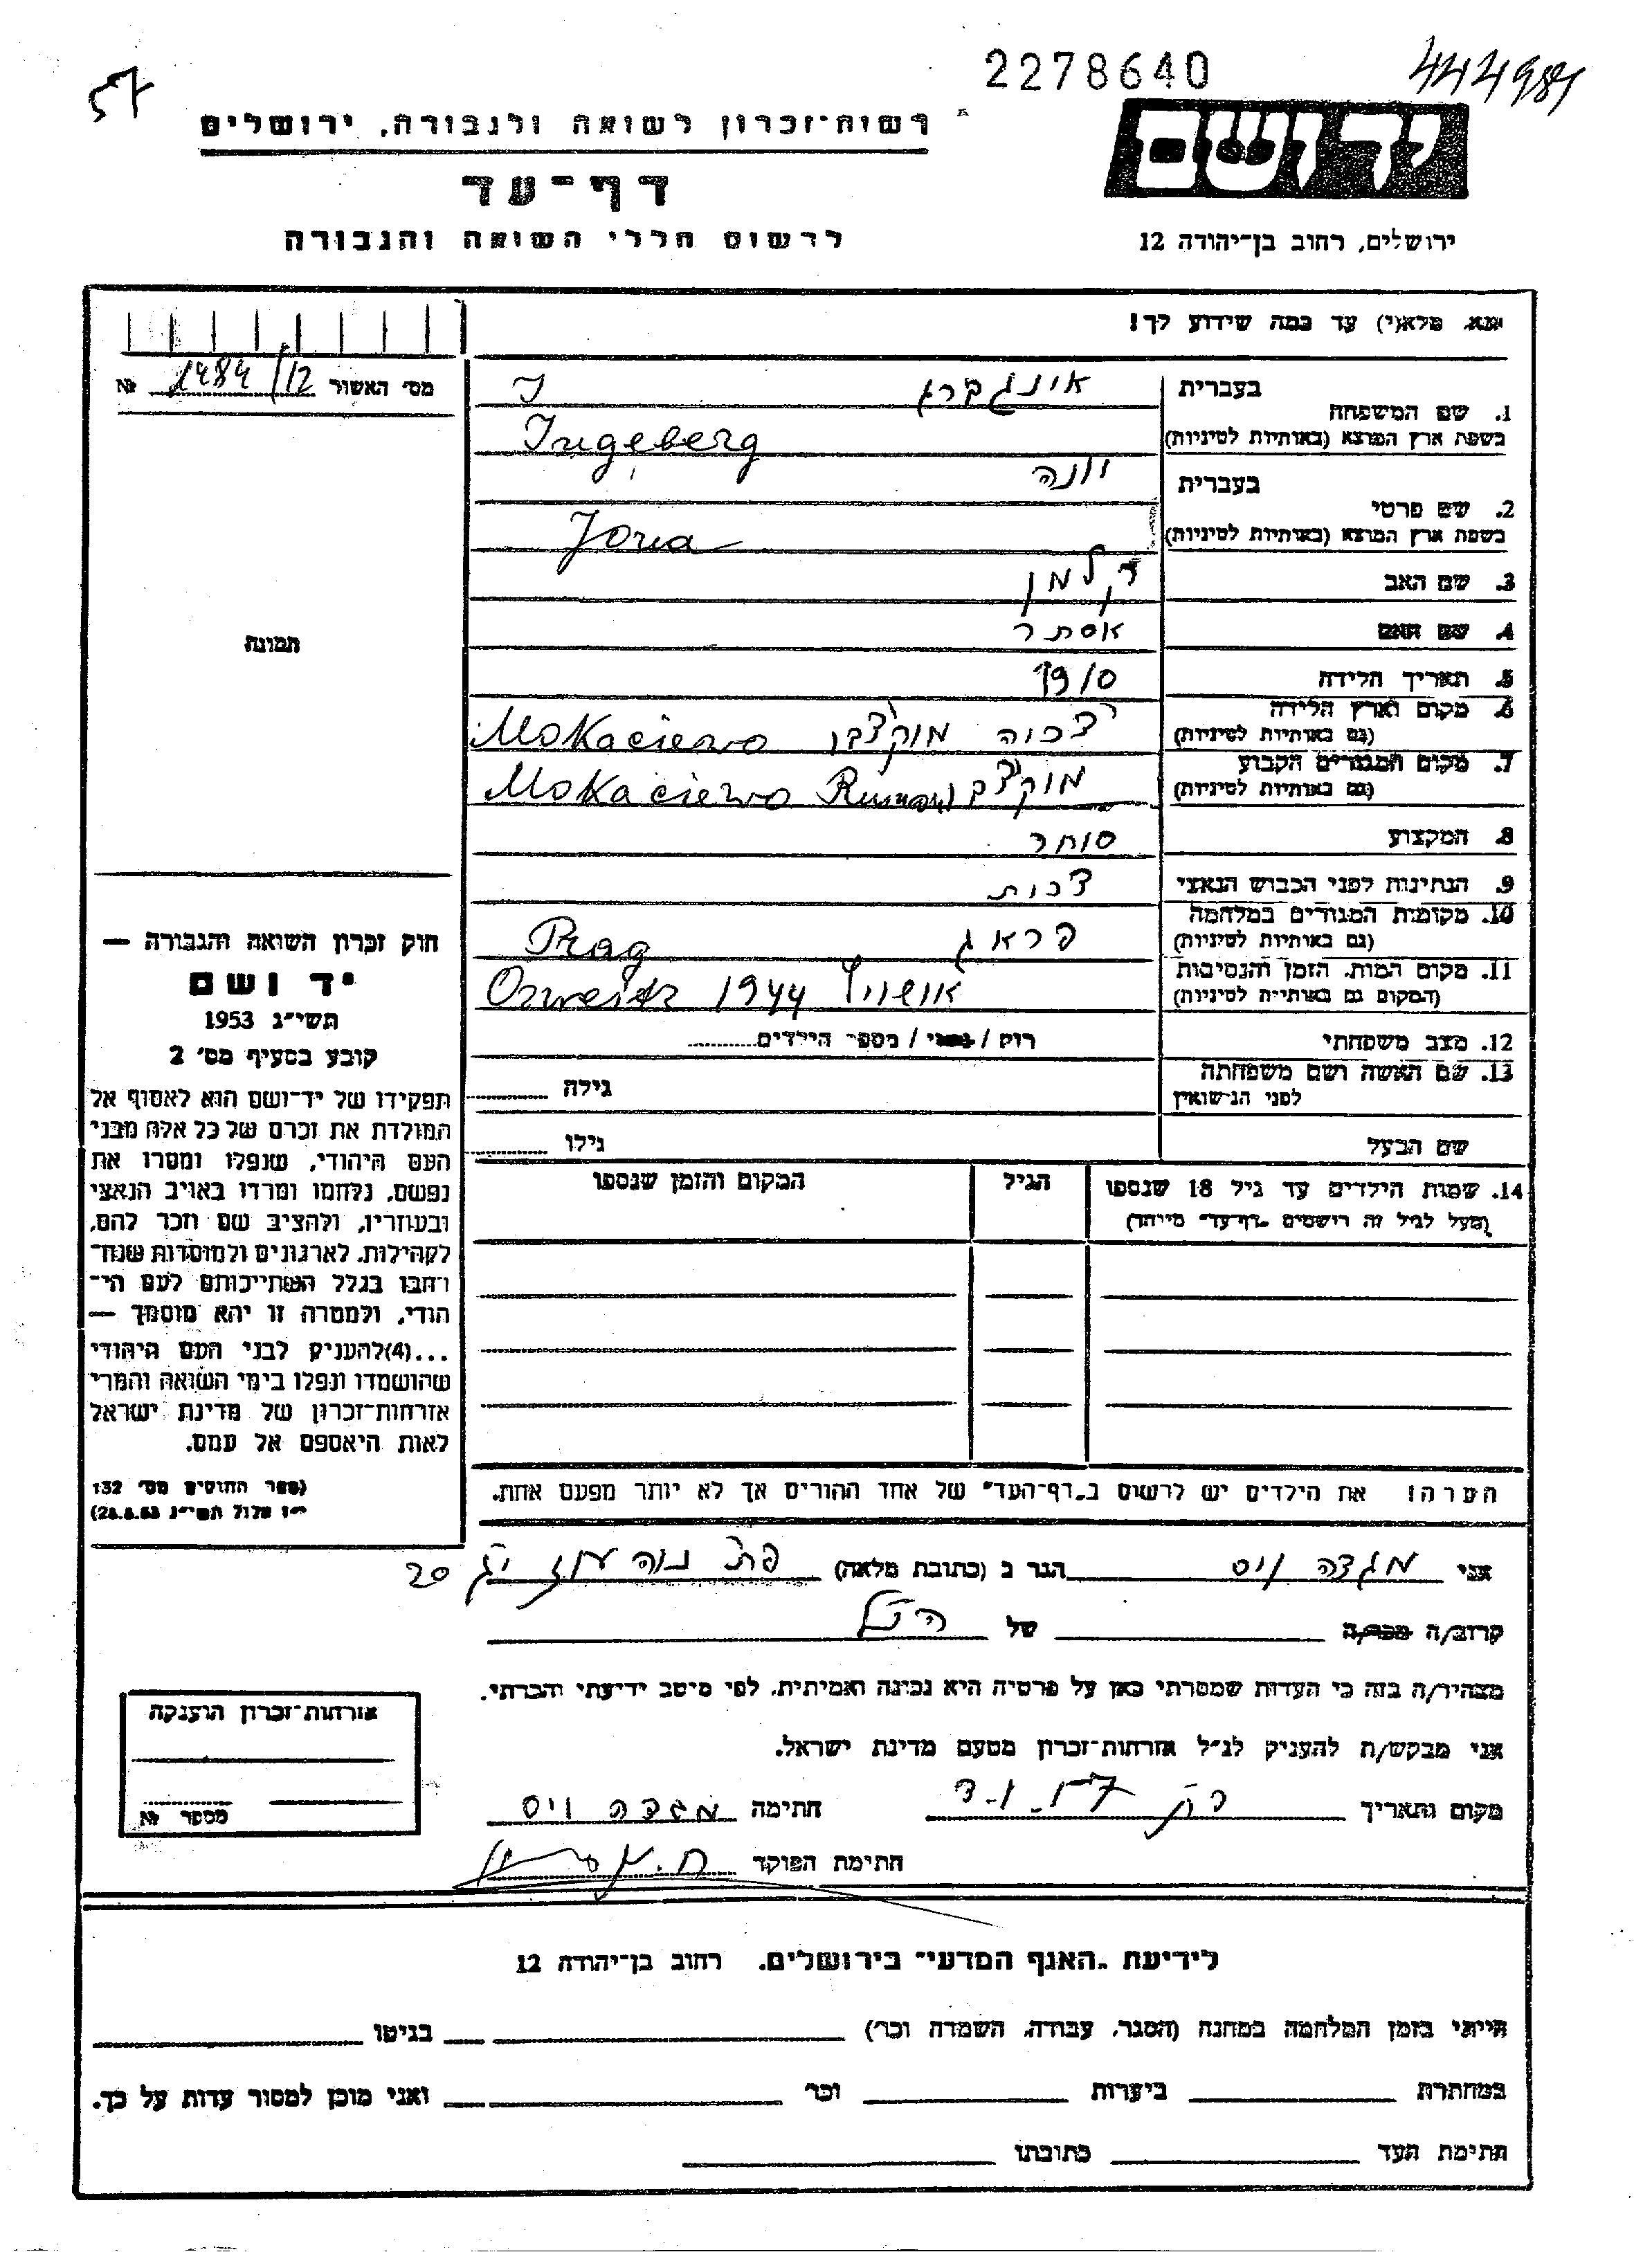 2278640
444984
57
רשות־זכרון לשואה ולגבורה, ירושלים
יד ושם
דף־עד
לרשום חללי השואה והגבורה
ירושלים, רחוב בן־יהודה 12
נא, מלא(י) עד כמה שידוע לך!
מס׳ האשור 1484/12 №
תמונה
1. שם המשפחה
בעברית אינגברג
בשפת ארץ המוצא (באותיות לטיניות) Ingeberg
2. שם פרטי
בעברית יונה
בשפת ארץ המוצא (באותיות לטיניות) Jona
3. שם האב קלמן
4. שם האם אסתר
5. תאריך הלידה 1910
6. מקום וארץ הלידה
(גם באותיות לטיניות) צכיה Mokaciewo
7. מקום המגורים הקבוע
(גם באותיות לטיניות) Mokaciewo
8. המקצוע סוחר
9. הנתינות לפני הכבוש הנאצי צכית
10. מקומות המגורים במלחמה
(גם באותיות לטיניות) פראג Prag
11. מקום המות, הזמן והנסיבות
(המקום גם באותיות לטיניות) אושוויץ 1944
12. מצב משפחתי רווק / נשוי / מספר הילדים
13. שם האשה ושם משפחתה
לפני הנישואין גילה
שם הבעל גילו
14. שמות הילדים עד גיל 18 שנספו
(מעל לגיל זה רושמים "דף־עד" מיוחד)
הגיל
המקום והזמן שנספו
הערה: את הילדים יש לרשום ב"דף־העד" של אחד ההורים אך לא יותר מפעם אחת.
חוק זכרון השואה והגבורה —
יד ושם
תשי״ג 1953
קובע בסעיף מס׳ 2
תפקידו של יד־ושם הוא לאסוף אל
המולדת את זכרם של כל אלה מבני
העם היהודי, שנפלו ומסרו את
נפשם, נלחמו ומרדו באויב הנאצי
ובעוזריו, ולהציב שם וזכר להם,
לקהילות, לארגונים ולמוסדות שנח־
רחבו בגלל השתייכותם לעם הי־
הודי, ולמטרה זו יהא מוסמך —
...(4)להעניק לבני העם היהודי
שהושמדו ונפלו בימי השואה והמרי
אזרחות־זכרון של מדינת ישראל
לאות היאספם אל עמם.
(ספר החוקים מס׳ 132
י״ז אלול תשי״ג 28.8.53)
אני מגדה וייס הגר ב (כתובת מלאה) 20
קרוב/ה מכר/ה של
מצהיר/ה בזה כי העדות שמסרתי כאן על פרטיה היא נכונה ואמיתית, לפי מיטב ידיעתי והכרתי.
אני מבקש/ת להעניק לנ״ל אזרחות־זכרון מטעם מדינת ישראל.
מקום ותאריך חתימה מגדה וייס
חתימת הפוקד
אזרחות־זכרון הוענקה
מספר №
לידיעת "האגף המדעי" בירושלים, רחוב בן־יהודה 12
הייתי בזמן המלחמה במחנה (הסגר, עבודה, השמדה וכו׳) בגיטו
במחתרת ביערות וכו׳ ואני מוכן למסור עדות על כך.
חתימת העד כתובתו